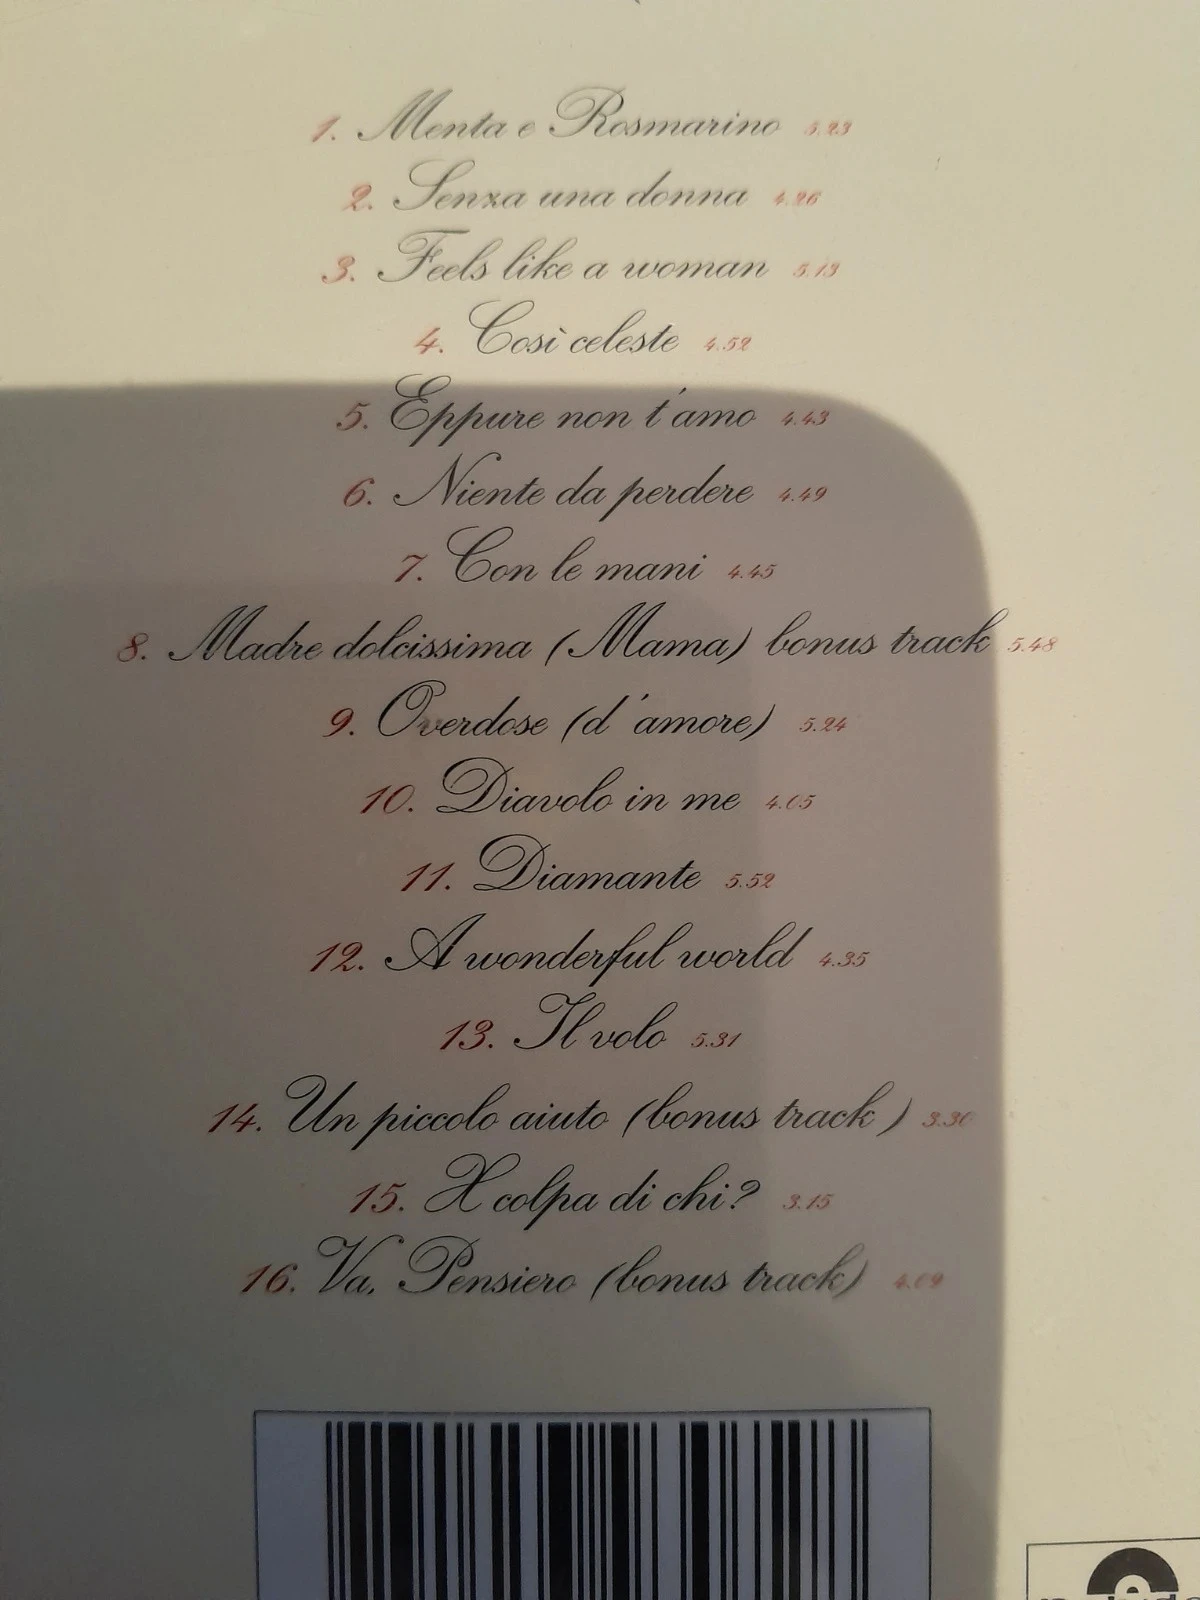 1. Menta e Rosmarino 5.23
2. Senza una donna 4.26
3. Feels like a woman 5.13
4. Così celeste 4.52
5. Eppure non t'amo 4.43
6. Niente da perdere 4.49
7. Con le mani 4.45
8. Madre dolcissima (Mama) bonus track 5.48
9. Overdose (d'amore) 5.24
10. Diavolo in me 4.05
11. Diamante 5.52
12. A wonderful world 4.35
13. Il volo 5.31
14. Un piccolo aiuto (bonus track) 3.30
15. X colpa di chi? 3.15
16. Va, Pensiero (bonus track) 4.09